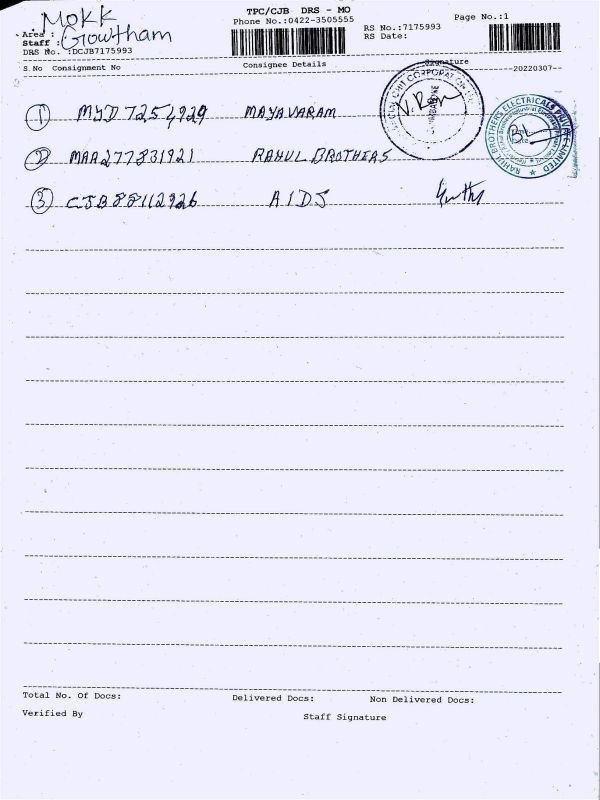 TPC/CJB DRS - MO
Phone No.:0422-3505555
Page No.:1
RS No.:7175993
RS Date:
Area : MOKK
Staff : Gowtham
DRS No. TDCJB7175993
S.No Consignment No Consignee Details Signature 20220307
① MYD7254929 MAYAVARAM
② MAA277831921 RAHUL BROTHERS
③ CJB88112926 AIDS
RAHUL BROTHERS ELECTRICALS PRIVATE LIMITED
Total No. Of Docs: Delivered Docs: Non Delivered Docs:
Verified By Staff Signature